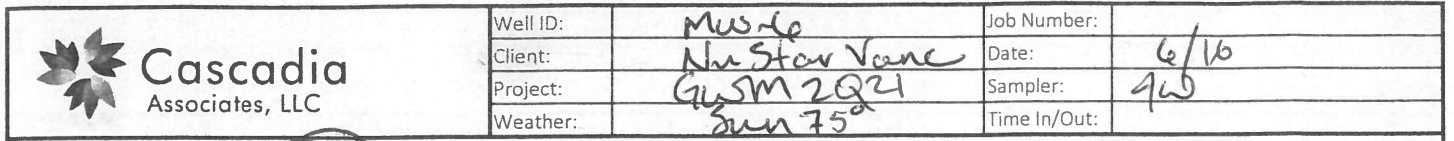 Cascadia
Associates, LLC
Well ID: Job Number:
Client: NuStar Vanc Date: 6/10
Project: GWSM 2Q21 Sampler:
Weather: Sun 75° Time In/Out: